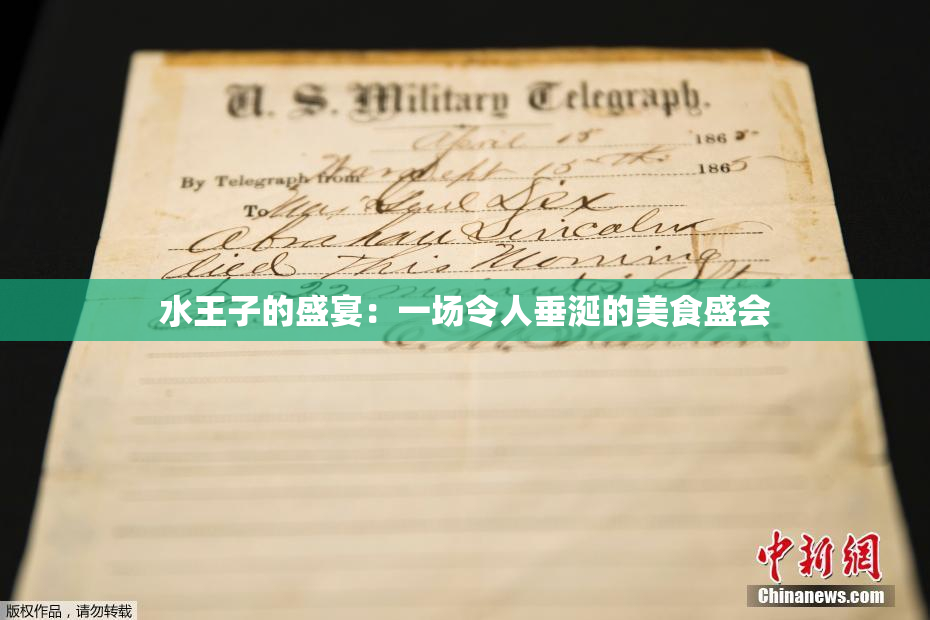 U. S. Military Telegraph.
April 15 1865
By Telegraph from War Dept 15th 1865
To Maj Genl Dix
Abraham Lincoln
died This Morning
at 22 minutes after
水王子的盛宴：一场令人垂涎的美食盛会
E. M. Stanton
中新网
Chinanews.com
版权作品，请勿转载